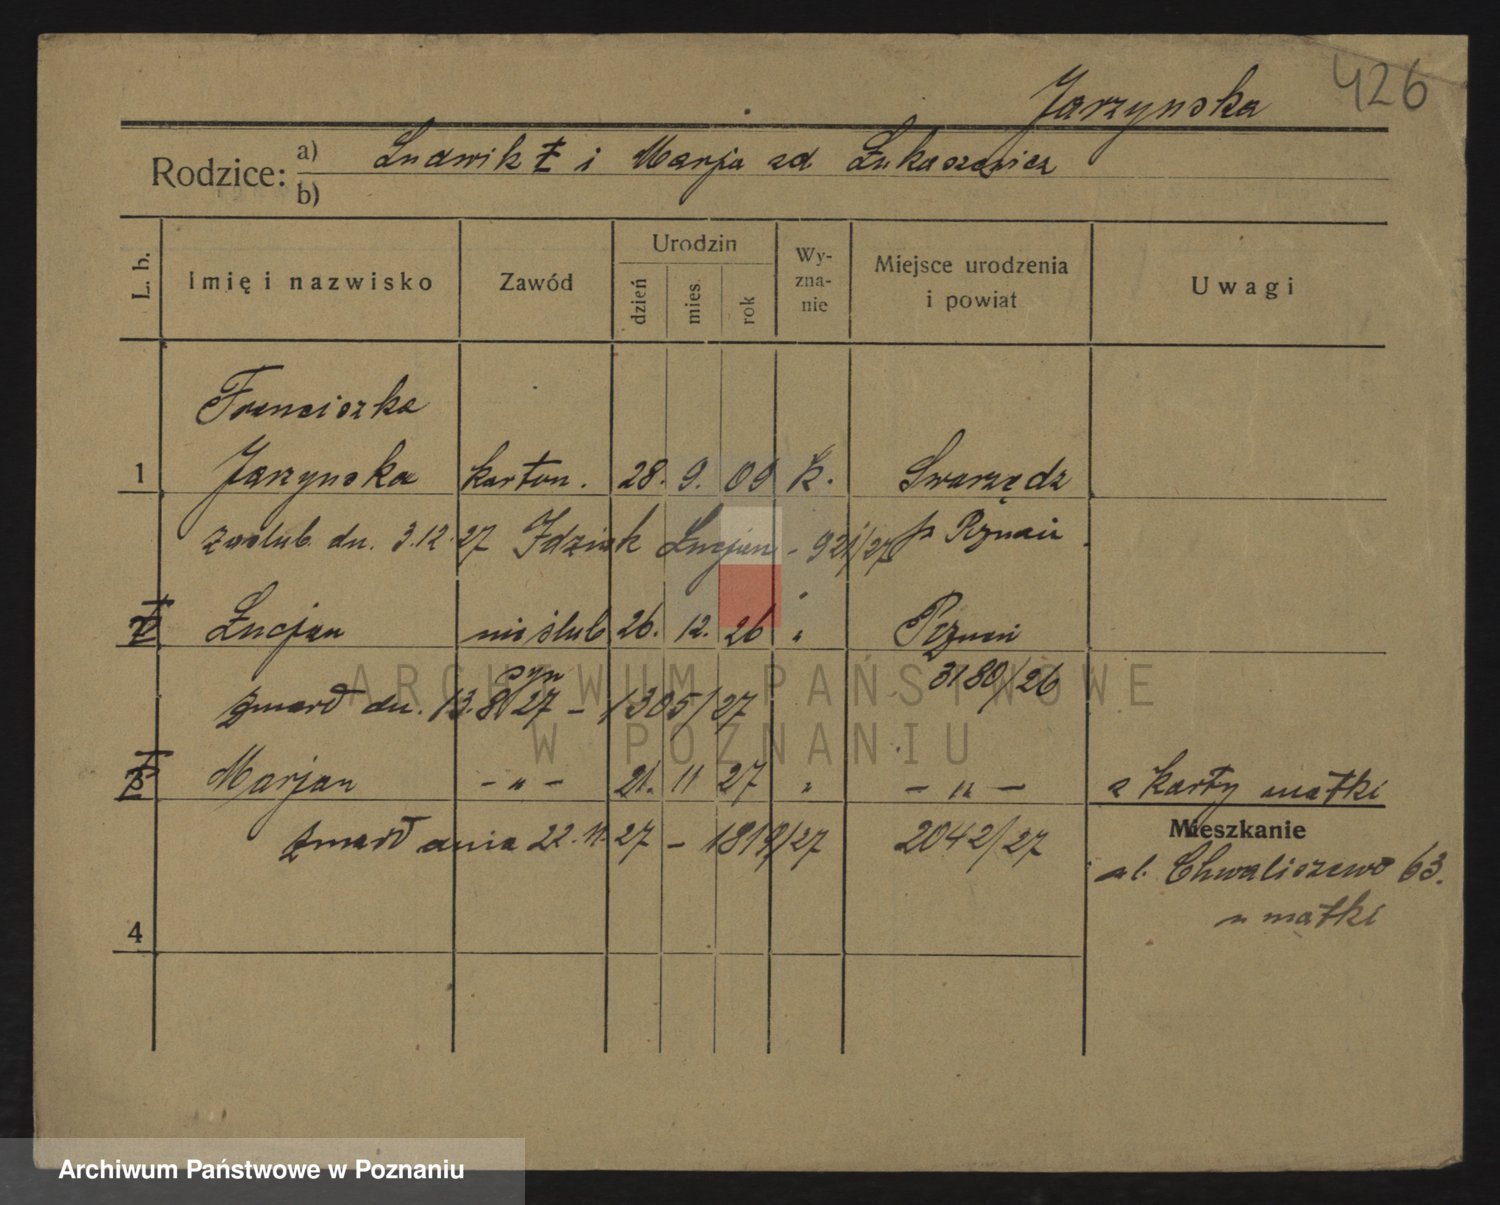 426
Jarzynska
Rodzice: a) Ludwik ł i Marja zd Łukaszewicz
b)
L. b.
Imię i nazwisko
Zawód
Urodzin
dzień
mies.
rok
Wy-
zna-
nie
Miejsce urodzenia
i powiat
Uwagi
Franciszka
1 Jarzynska karton. 28. 9. 09 k. Swarzędz
zaślub. dn. 3.12.27 Idziak Łucjan - 921/27 p. Poznań
2 Łucjan nieślub 26. 12. 26 " Poznań
syn 3180/26
zmarł dn. 13.8 27 - 1305/27
3 Marjan - " - 21. 11 27 " - " - z karty matki
Mieszkanie
zmarł dnia 22.11.27 - 1819/27 2042/27
ul. Chwaliszewo 63.
u matki
4
ARCHIWUM PAŃSTWOWE
W POZNANIU
Archiwum Państwowe w Poznaniu